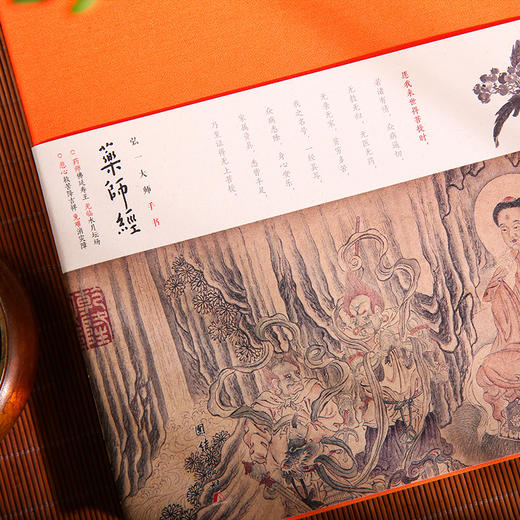 愿我来世得菩提时，
若诸有情，众病逼切，
无救无归，无医无药，
无亲无家，贫穷多苦，
我之名号，一经其耳，
众病悉除，身心安乐，
家属资具，悉皆丰足，
乃至证得无上菩提。
弘一大师手书
藥師經
药师佛延寿王 光临水月坛场
悲心救苦降吉祥 免难消灾障